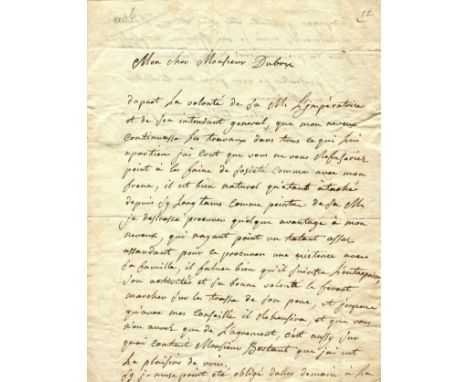 12
Mon cher Monsieur Duboix
dapret la volonté de Sa M. L'impératrice
et de Son intendant general, que mon neveux
continuasse les travaux dans tous ce qui lui
apartien jai crut que vous ne vous Refuseriér
point à les faire de Société comme avec mon
frere, il est bien naturel qu'étant ataché
depuis Sy Longtems comme peintre de Sa M.
je desirasse procurer quelque avantage à mon
neveux, qui nayant point un talant asser
assandant pour se procurer une existence avec
Sa famille, il falloit bien qu'il Suivit l'entreprise
Son activités et Sa bonne volonté le feront
marcher Sur la trasse de Son pere, et j'espere
qu'avec mes conseille il Réheusira et que vous
n'en aurez que de l'agrement c'est aussy Sur
quoi contant Monsieur Bastant que jai eut
Le plaisir de voir.
Sy je nuse point été obligé daller demain à La